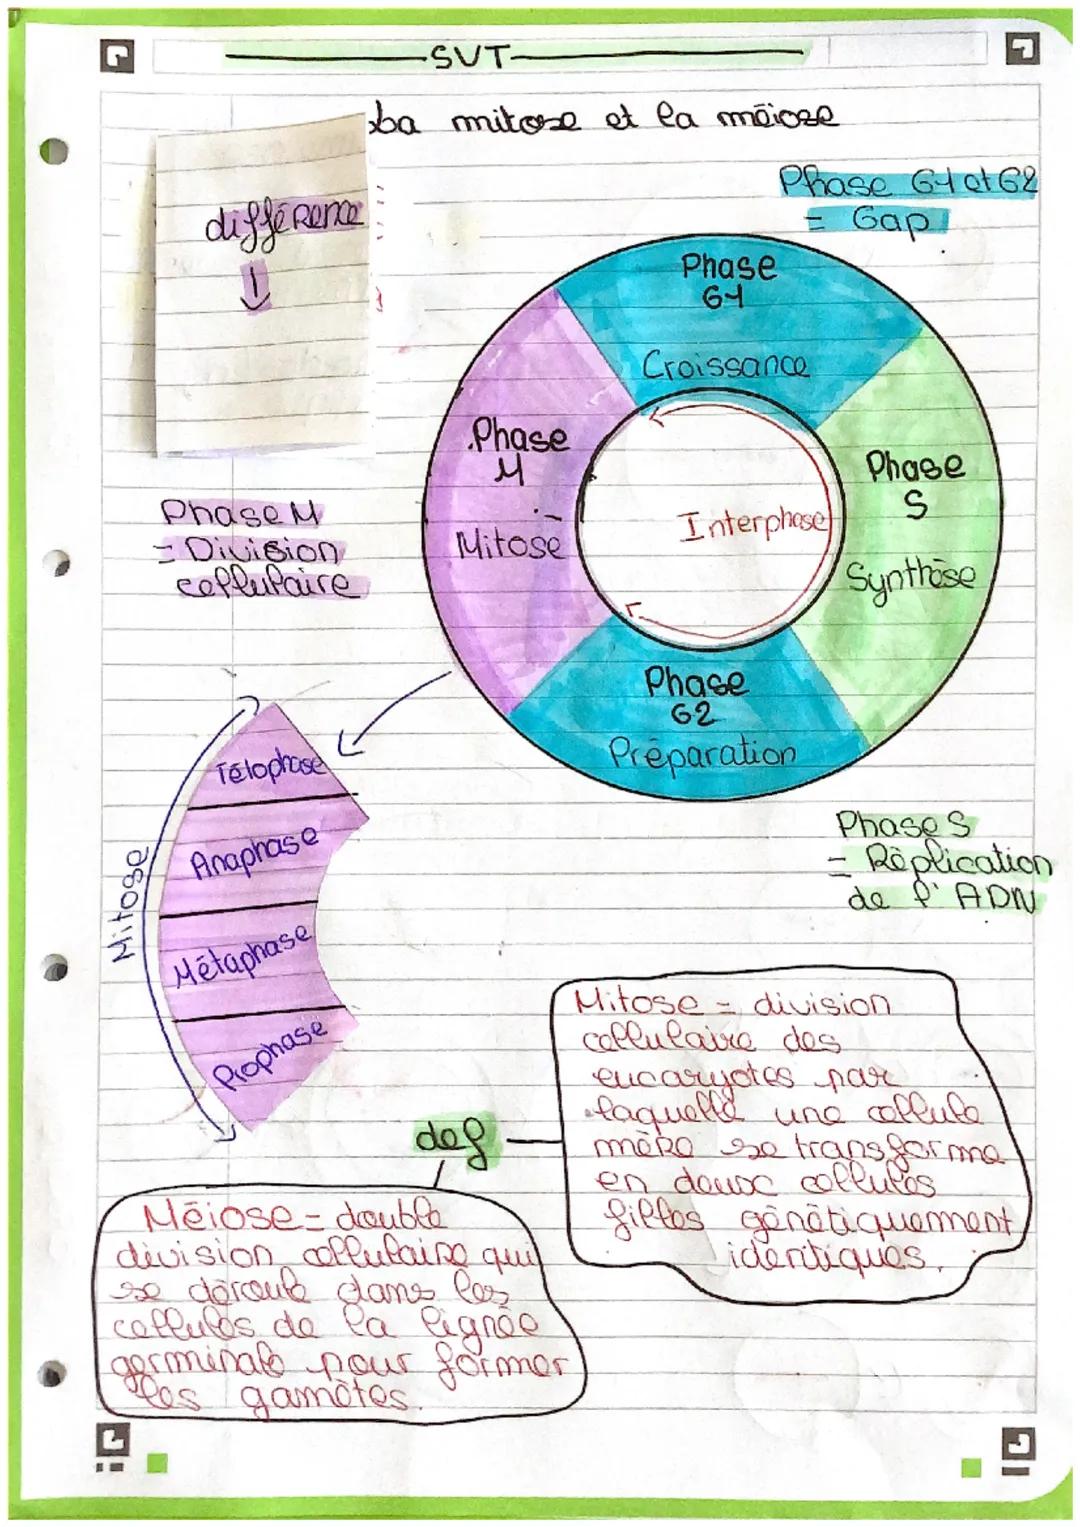 SVT
La mitose et la méiose
différence
Phase G1 et G2
= Gap
Phase
G1
Croissance
Phase
M
Mitose
Interphase
Phase
S
Synthèse
Phase M
= Division
cellulaire
Phase
G2
Préparation
Télophase
Anaphase
Métaphase
Prophase
Mitose
Phase S
= Réplication
de l'ADN
def
Mitose = division
cellulaire des
eucaryotes par
laquelle une cellule
mère se transforme
en deux cellules
filles génétiquement
identiques.
Méiose = double
division cellulaire qui
se déroule dans les
cellules de la lignée
germinale pour former
les gamètes.